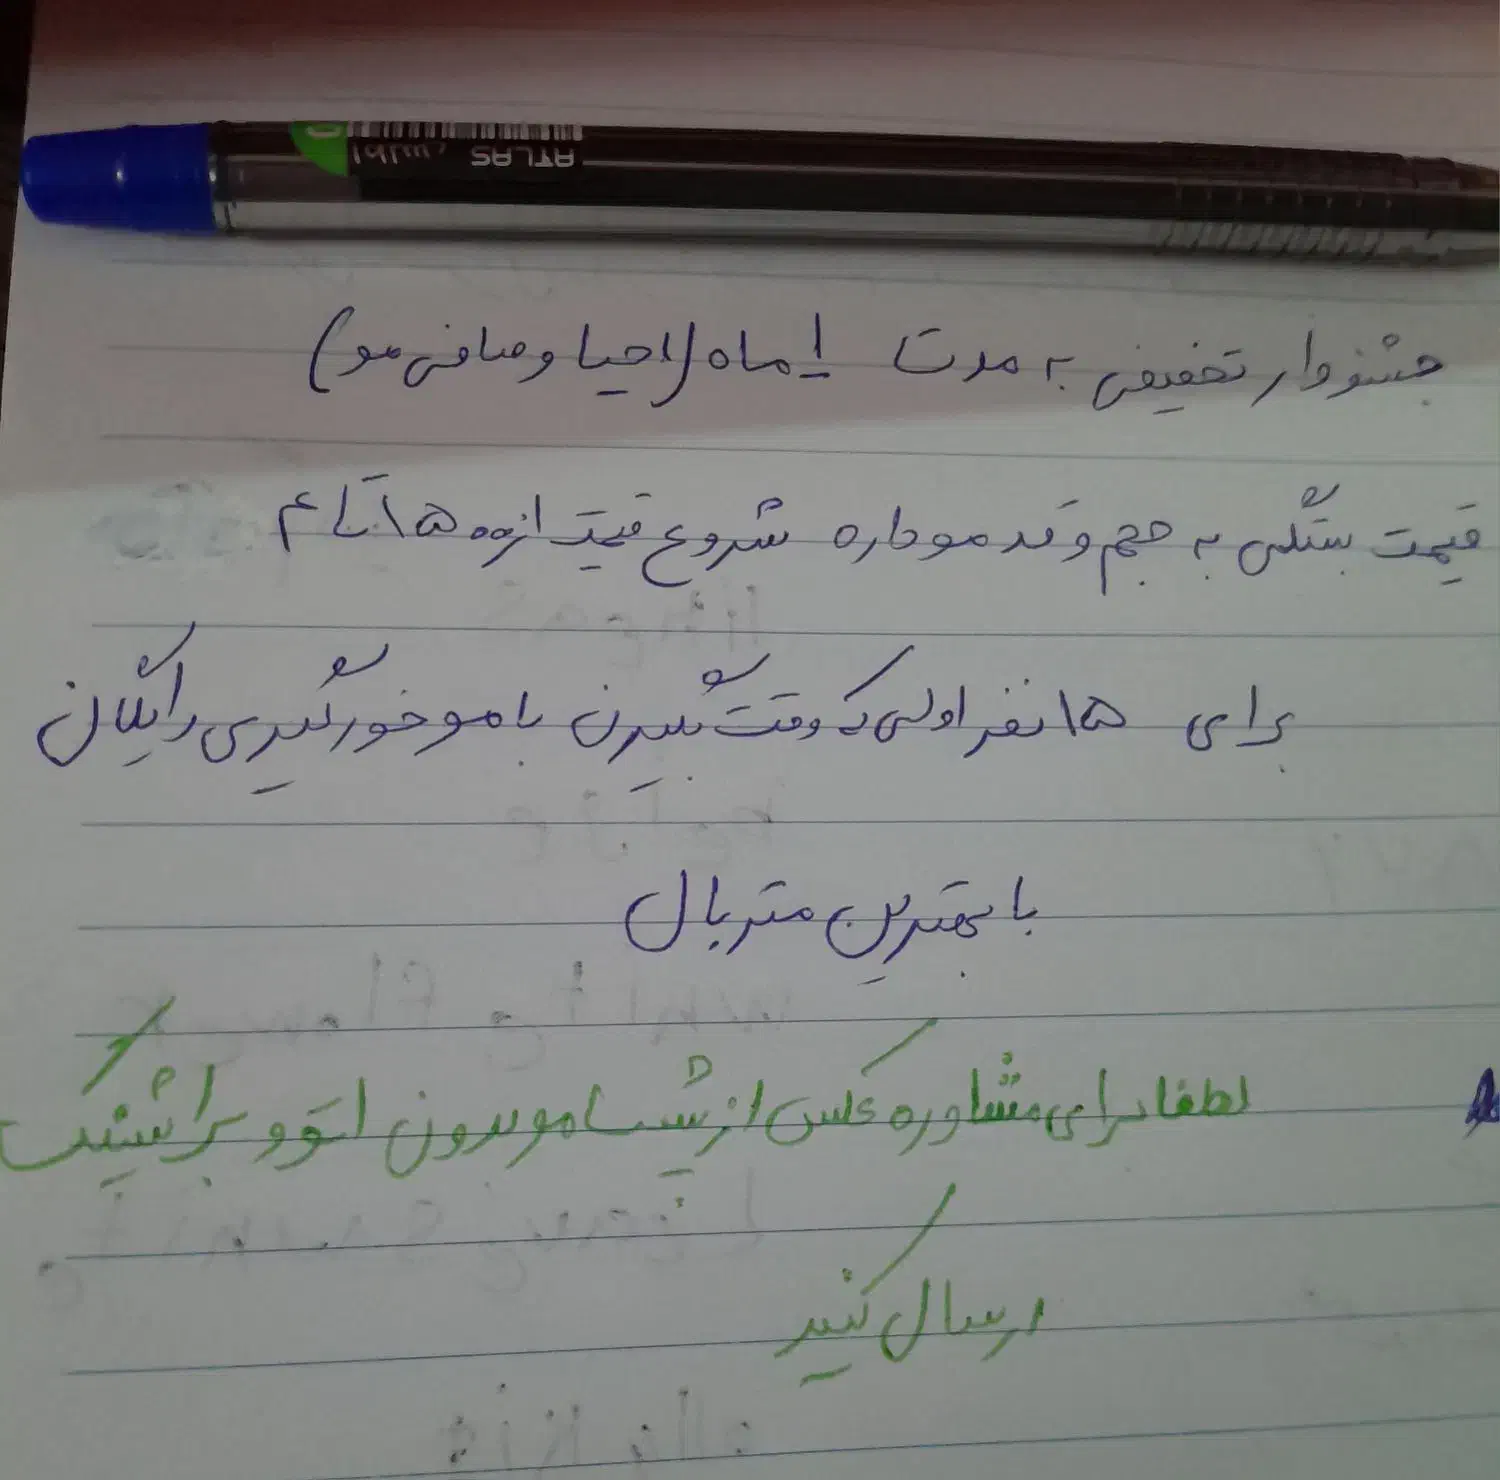 ATLAS اطلس
جشنوار تخفیفی به مدت ۱ ماه (احیا و صافی مو)
قیمت بستگی به حجم و قد مو داره شروع قیمت از ۱۵۰۰ تا ۴
برای ۱۵ نفر اولی که وقت بگیرن با موخورگیری رایگان
با بهترین متریال
لطفا برای مشاوره عکس از پشت مو بدون اتو و براشینگ
ارسال کنید